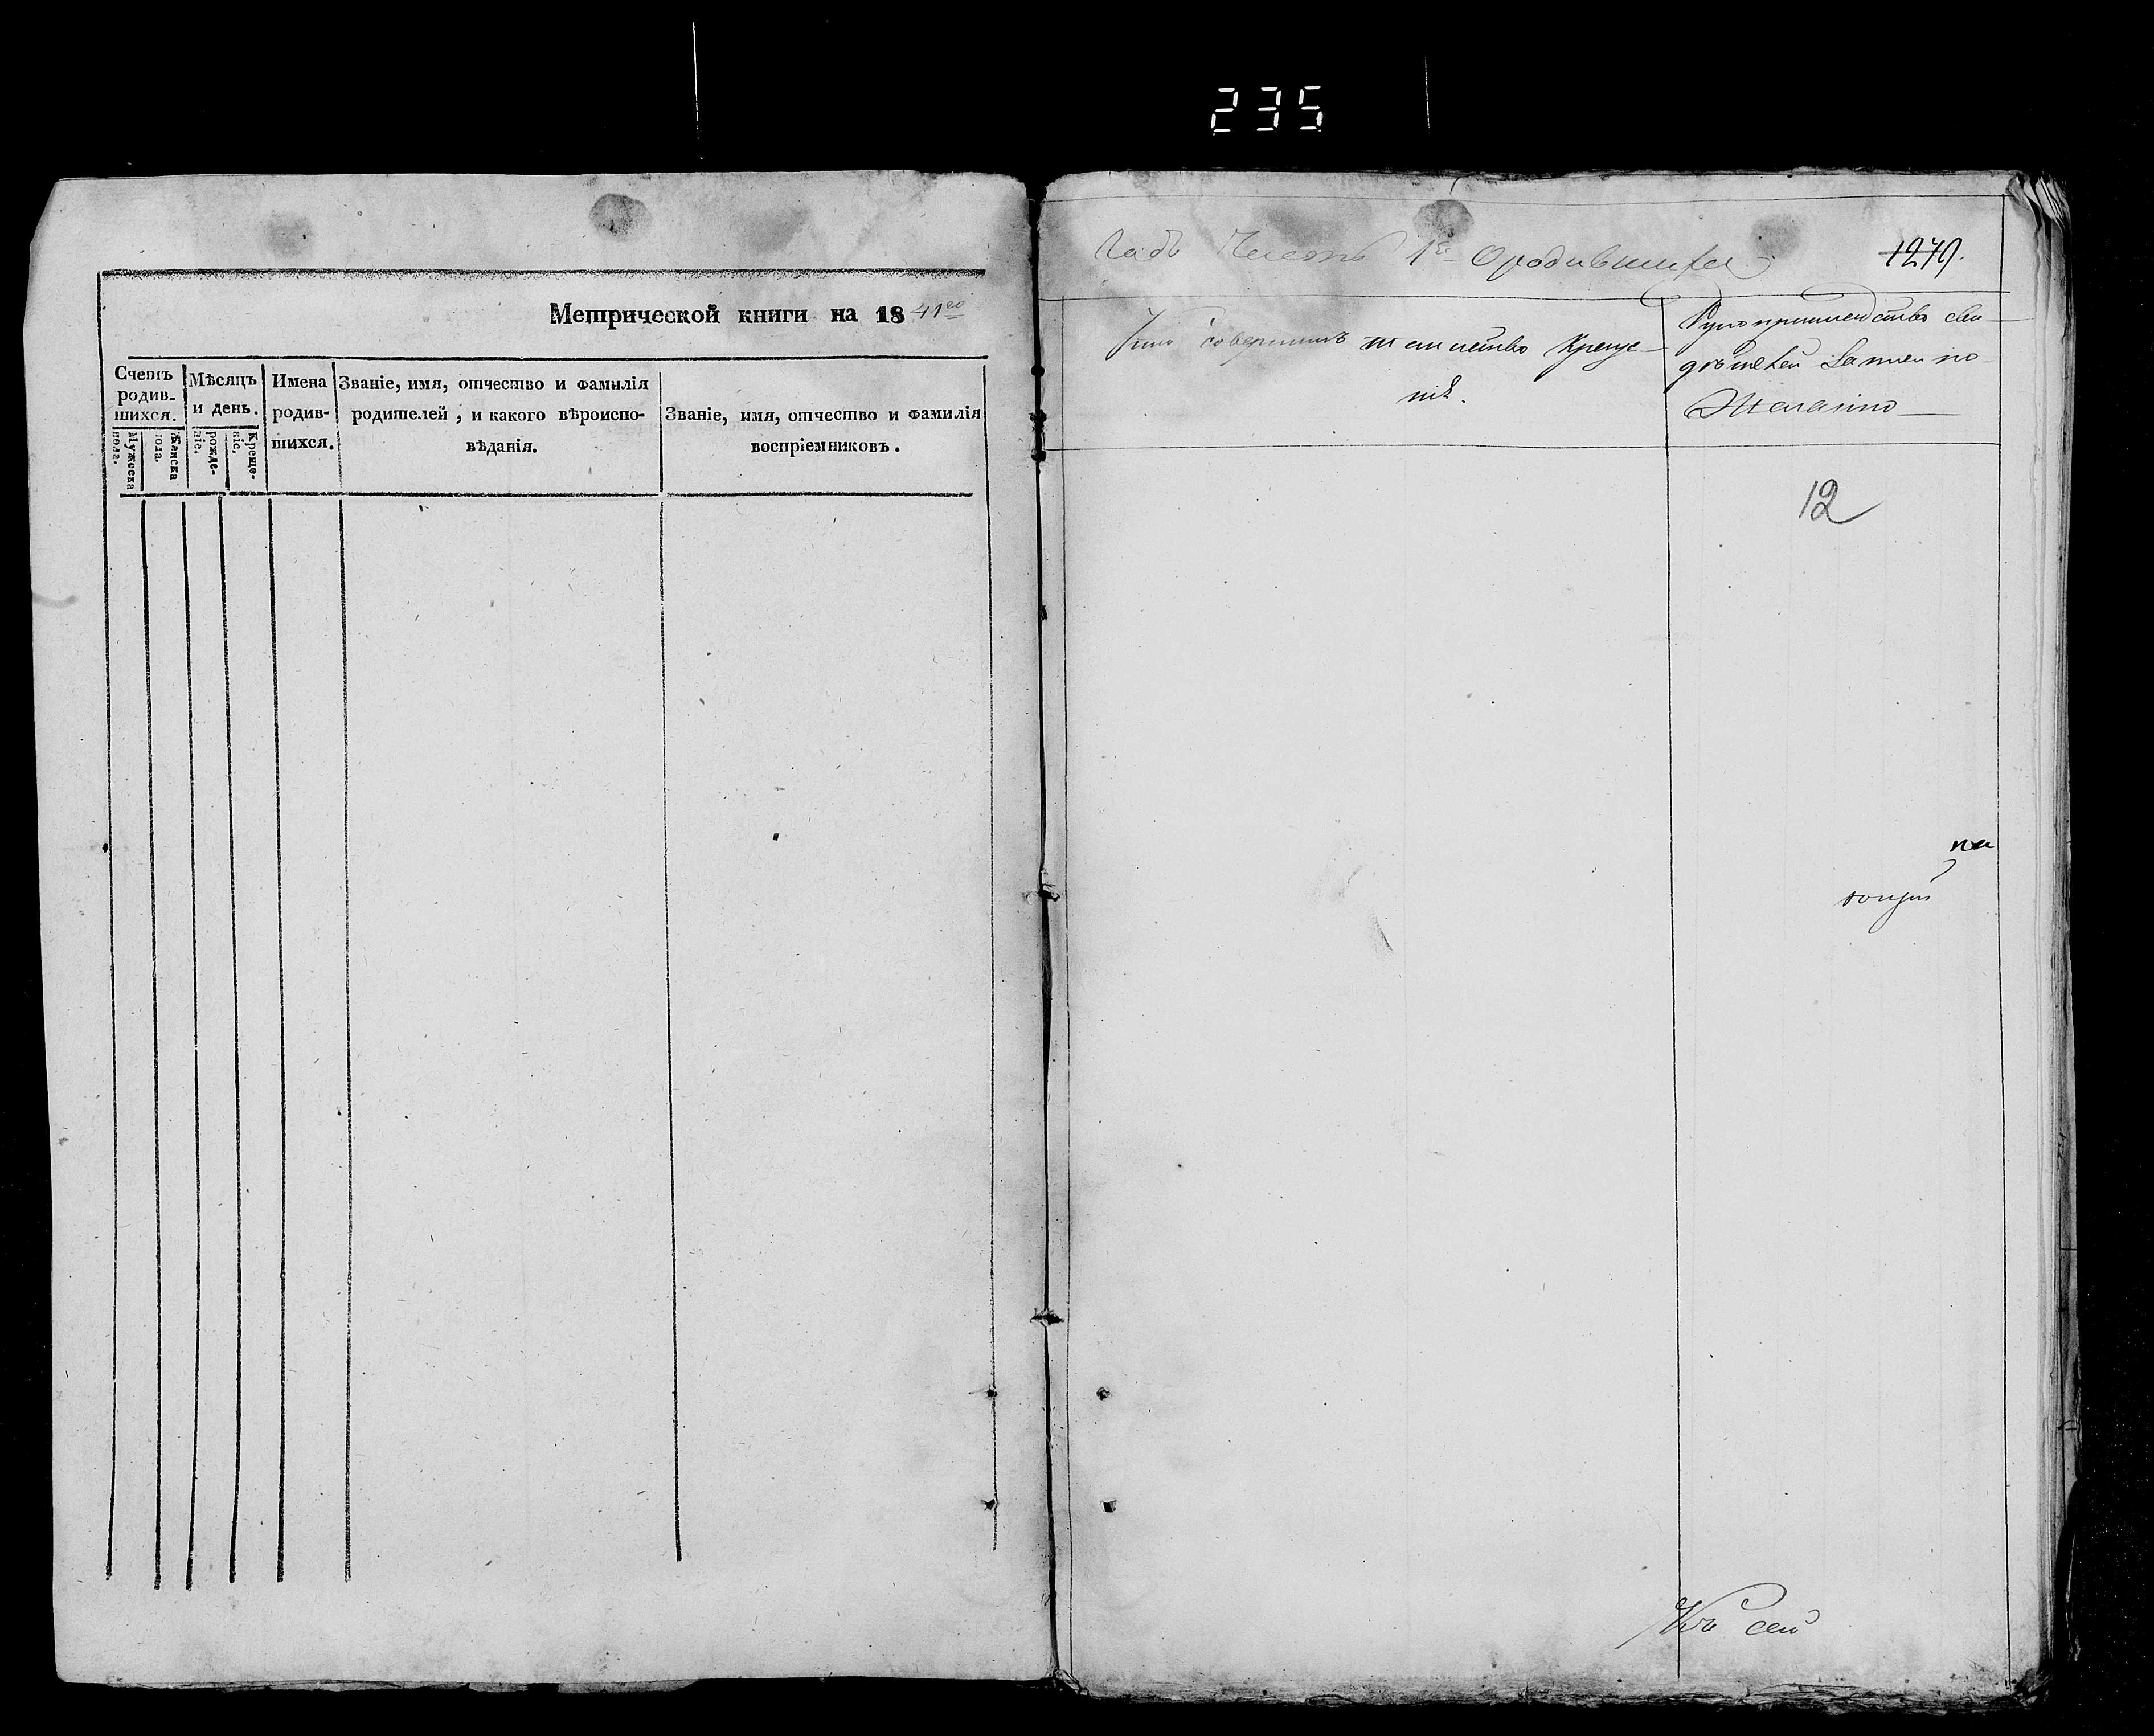 235
Метрической книги на 1841го
Счетъ родив-шихся.
Мужеска пола.
Женска пола.
Мѣсяцъ и день.
рожде-ніе.
Креще-ніе,
Имена родив-шихся.
Званіе, имя, отчество и фамилія
родителей, и какого вѣроиспо-
вѣданія.
Званіе, имя, отчество и фамилія
воспріемниковъ.
годъ Часть 1я О родившихся
1279.
Кто совершилъ таинство Креще-
нія.
Рукоприкладство сви-
дѣтелей записи по
Желанію
12
на
Въ сей